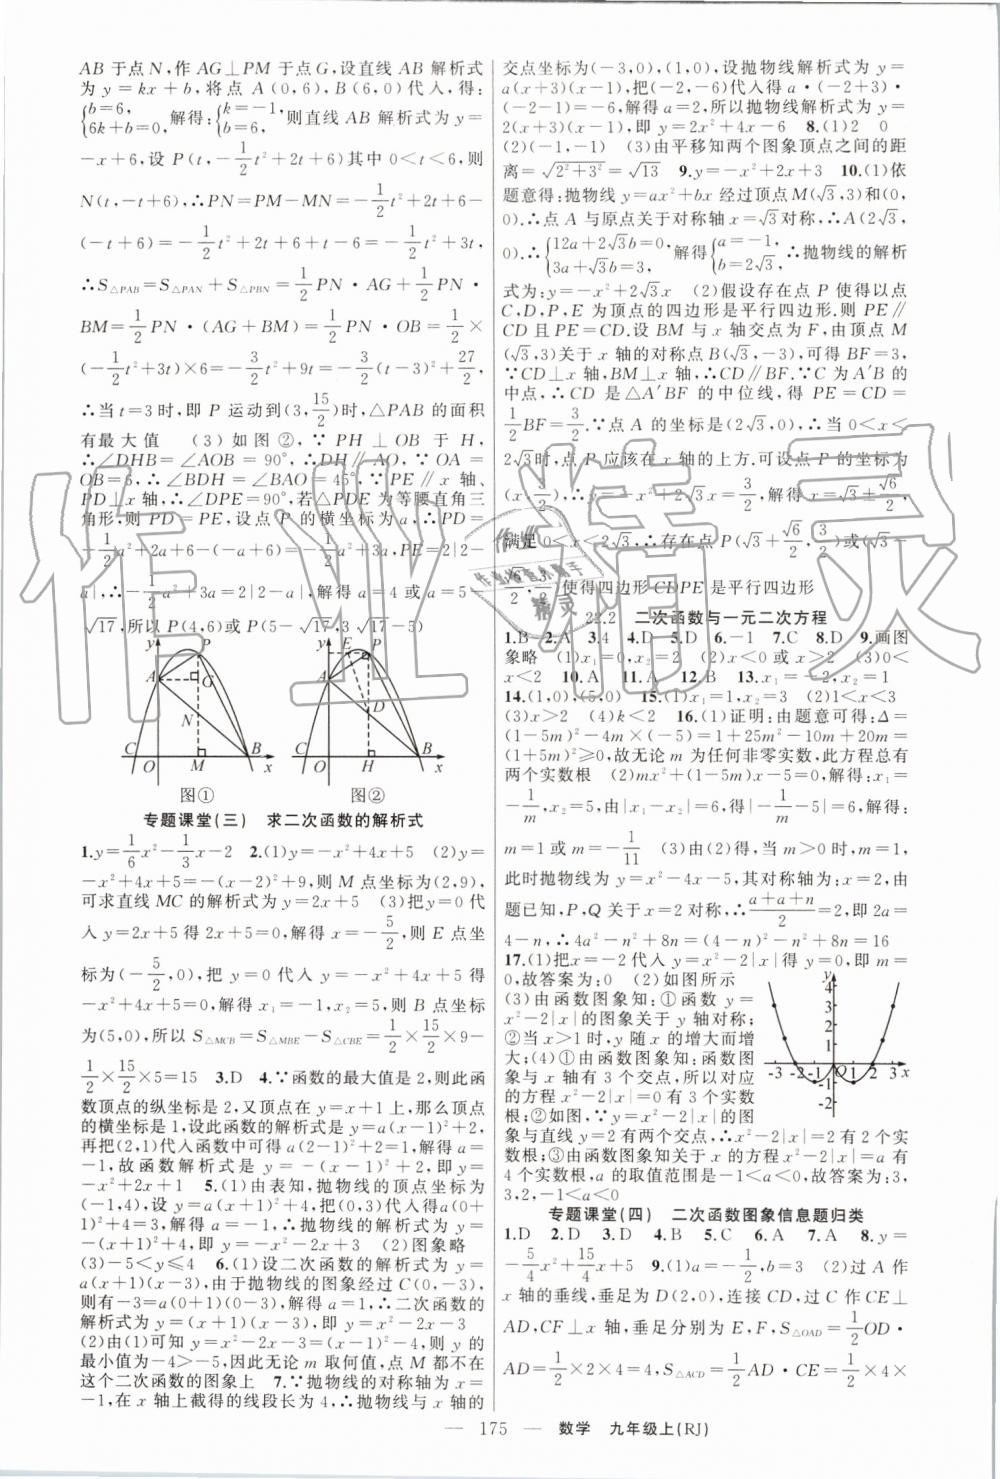 AB于点N,作AG⊥PM于点G,设直线AB解析式
为y=kx+b,将点A(0,6),B(6,0)代入,得:
{b=6, 6k+b=0, 解得:{k=-1, b=6, 则直线AB解析式为y=
-x+6,设P(t,-1/2t²+2t+6)其中0<t<6,则
N(t,-t+6),∴PN=PM-MN=-1/2t²+2t+6-
(-t+6)=-1/2t²+2t+6+t-6=-1/2t²+3t,
∴S△PAB=S△PAN+S△PBN=1/2PN·AG+1/2PN·
BM=1/2PN·(AG+BM)=1/2PN·OB=1/2×
(-1/2t²+3t)×6=-3/2t²+9t=-3/2(t-3)²+27/2,
∴当t=3时,即P运动到(3,15/2)时,△PAB的面积
有最大值 (3)如图②,∵PH⊥OB于H,
∴∠DHB=∠AOB=90°,∴DH∥AO,∵OA=
OB=6,∴∠BDH=∠BAO=45°,∵PE∥x轴、
PD⊥x轴,∴∠DPE=90°,若△PDE为等腰直角三
角形,则PD=PE,设点P的横坐标为a,∴PD=
-1/2a²+2a+6-(-a+6)=-1/2a²+3a,PE=2|2-
a|,∴-1/2a²+3a=2|2-a|,解得a=4或a=5-
√17,所以P(4,6)或P(5-√17,3√17-5)
y E P A G N C O M B x
y E P A D C O H B x
图① 图②
专题课堂(三) 求二次函数的解析式
1.y=1/6x²-1/3x-2 2.(1)y=-x²+4x+5 (2)y=
-x²+4x+5=-(x-2)²+9,则M点坐标为(2,9),
可求直线MC的解析式为y=2x+5 (3)把y=0代
入y=2x+5得2x+5=0,解得x=-5/2,则E点坐
标为(-5/2,0),把y=0代入y=-x²+4x+5得
-x²+4x+5=0,解得x₁=-1,x₂=5,则B点坐标
为(5,0),所以S△MCB=S△MBE-S△CBE=1/2×15/2×9-
1/2×15/2×5=15 3.D 4.∵函数的最大值是2,则此函
数顶点的纵坐标是2,又顶点在y=x+1上,那么顶点
的横坐标是1,设此函数的解析式是y=a(x-1)²+2,
再把(2,1)代入函数中可得a(2-1)²+2=1,解得a=
-1,故函数解析式是y=-(x-1)²+2,即y=
-x²+2x+1 5.(1)由表知,抛物线的顶点坐标为
(-1,4),设y=a(x+1)²+4,把(0,3)代入得a(0+
1)²+4=3,解得a=-1,∴抛物线的解析式为y=
-(x+1)²+4,即y=-x²-2x+3 (2)图象略
(3)-5<y≤4 6.(1)设二次函数的解析式为y=
a(x+1)(x-3),由于抛物线的图象经过C(0,-3),
则有-3=a(0+1)(0-3),解得a=1,∴二次函数的
解析式为y=(x+1)(x-3),即y=x²-2x-3
(2)由(1)可知y=x²-2x-3=(x-1)²-4,则y的
最小值为-4>-5,因此无论m取何值,点M都不在
这个二次函数的图象上 7.∵抛物线的对称轴为x=
-1,在x轴上截得的线段长为4,∴抛物线与x轴的
交点坐标为(-3,0),(1,0),设抛物线解析式为y=
a(x+3)(x-1),把(-2,-6)代入得a·(-2+3)·
(-2-1)=-6,解得a=2,所以抛物线解析式为y=
2(x+3)(x-1),即y=2x²+4x-6 8.(1)2 0
(2)(-1,-1) (3)由平移知两个图象顶点之间的距
离=√(2²+3²)=√13 9.y=-x²+2x+3 10.(1)依
题意得:抛物线y=ax²+bx经过顶点M(√3,3)和(0,
0).∴点A与原点关于对称轴x=√3对称,∴A(2√3,
0).∴{12a+2√3b=0, 3a+√3b=3, 解得{a=-1, b=2√3, ∴抛物线的解析
式为:y=-x²+2√3x (2)假设存在点P使得以点
C,D,P,E为顶点的四边形是平行四边形.则PE∥
CD且PE=CD.设BM与x轴交点为F,由顶点M
(√3,3)关于x轴的对称点B(√3,-3),可得BF=3,
∵CD⊥x轴,BM⊥x轴,∴CD∥BF.∵C为A′B的
中点,∴CD是△A′BF的中位线,得PE=CD=
1/2BF=3/2.∵点A的坐标是(2√3,0),∴当0<x<
2√3时,点P应该在x轴的上方.可设点P的坐标为
(x,3/2),∴y=-x²+2√3x=3/2,解得x=√3±√6/2,
满足0<x<2√3,∴存在点P(√3+√6/2,3/2)或(√3-
√6/2,3/2)使得四边形CDPE是平行四边形
22.2 二次函数与一元二次方程
1.B 2.A 3.4 4.D 5.D 6.-1 7.C 8.D 9.画图
象略 (1)x₁=0,x₂=2 (2)x<0或x>2 (3)0<
x<2 10.A 11.A 12.B 13.x₁=-2,x₂=1
14.(1,0),(5,0) 15.(1)x₁=1,x₂=3 (2)1<x<3
(3)x>2 (4)k<2 16.(1)证明:由题意可得:Δ=
(1-5m)²-4m×(-5)=1+25m²-10m+20m=
(1+5m)²≥0,故无论m为任何非零实数,此方程总有
两个实数根 (2)mx²+(1-5m)x-5=0,解得:x₁=
-1/m,x₂=5,由|x₁-x₂|=6,得|-1/m-5|=6,解得:
m=1或m=-1/11 (3)由(2)得,当m>0时,m=1,
此时抛物线为y=x²-4x-5,其对称轴为:x=2,由
题已知,P,Q关于x=2对称,∴(a+a+n)/2=2,即2a=
4-n,∴4a²-n²+8n=(4-n)²-n²+8n=16
17.(1)把x=-2代入y=x²-2|x|得y=0,即m=
0,故答案为:0 (2)如图所示
(3)由函数图象知:①函数y=
x²-2|x|的图象关于y轴对称;
②当x>1时,y随x的增大而增
大;(4)①由函数图象知:函数图
象与x轴有3个交点,所以对应
的方程x²-2|x|=0有3个实数
根;②如图,∵y=x²-2|x|的图
象与直线y=2有两个交点,∴x²-2|x|=2有2个实
数根;③由函数图象知关于x的方程x²-2|x|=a有
4个实数根,a的取值范围是-1<a<0,故答案为:3,
3,2,-1<a<0
y 4 3 2 1 -3 -2 -1 O 1 2 3 x -1 -2
专题课堂(四) 二次函数图象信息题归类
1.D 2.D 3.D 4.B 5.C 6.A 7.A 8.y=
-5/4x²+15/4x+5 9.(1)a=-1/2,b=3 (2)过A作
x轴的垂线,垂足为D(2,0),连接CD,过C作CE⊥
AD,CF⊥x轴,垂足分别为E,F,S△OAD=1/2OD·
AD=1/2×2×4=4,S△ACD=1/2AD·CE=1/2×4×
— 175 — 数学 九年级上(RJ)
作业精灵